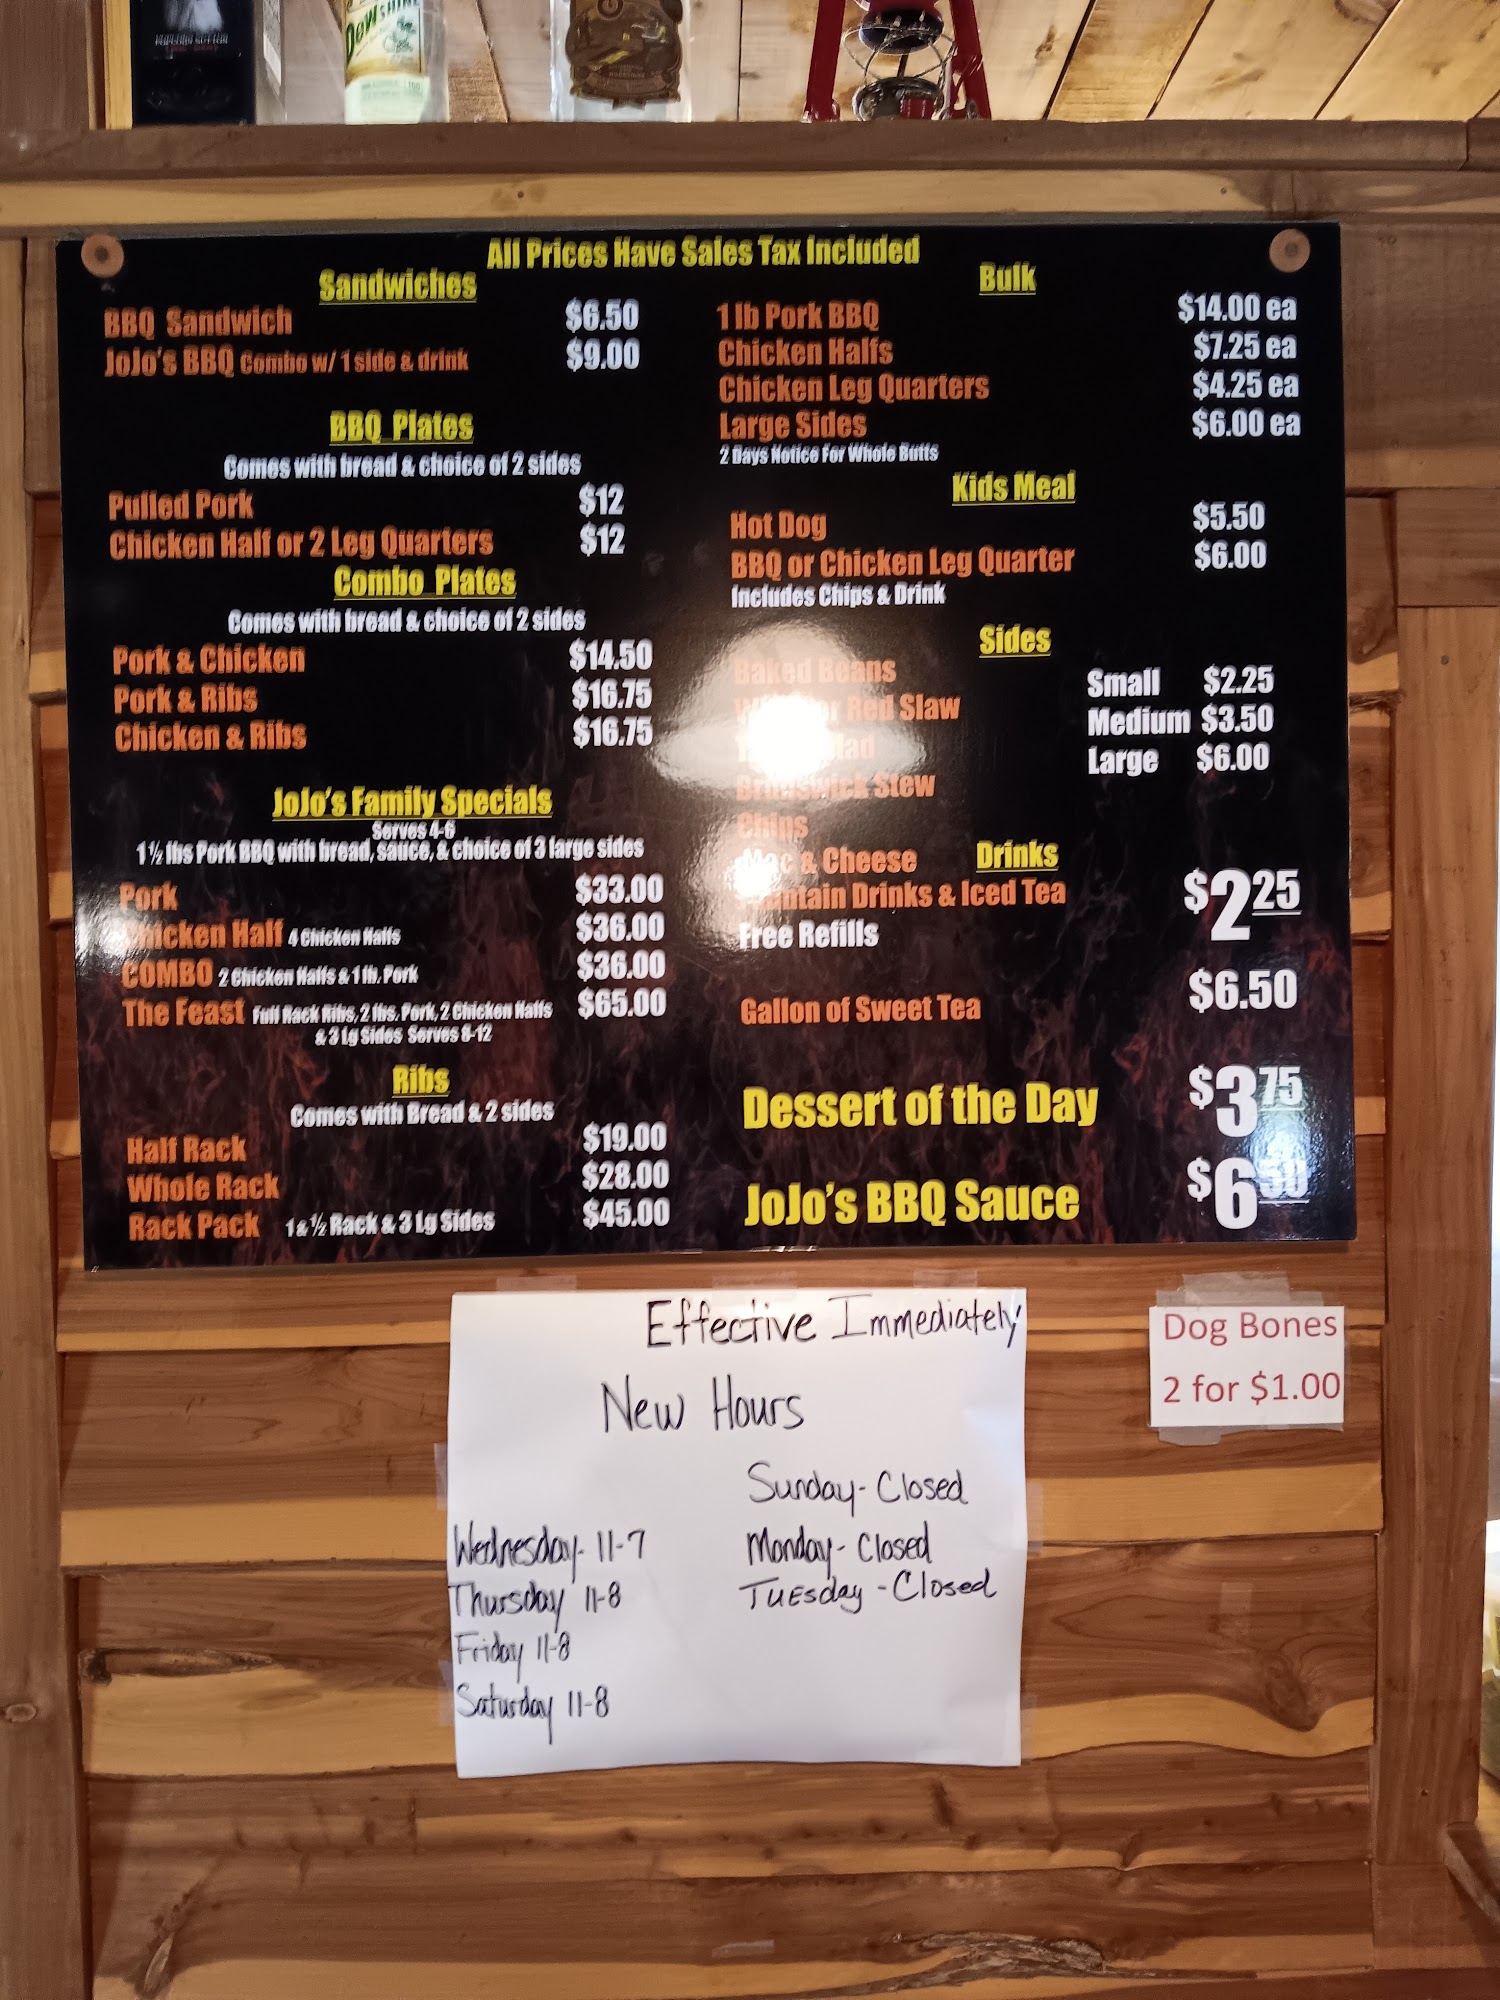 DewShine
All Prices Have Sales Tax Included
Sandwiches
BBQ Sandwich $6.50
JoJo's BBQ Combo w/ 1 side & drink $9.00
BBQ Plates
Comes with bread & choice of 2 sides
Pulled Pork $12
Chicken Half or 2 Leg Quarters $12
Combo Plates
Comes with bread & choice of 2 sides
Pork & Chicken $14.50
Pork & Ribs $16.75
Chicken & Ribs $16.75
JoJo's Family Specials
Serves 4-6
1 ½ lbs Pork BBQ with bread, sauce, & choice of 3 large sides
Pork $33.00
Chicken Half 4 Chicken Halfs $36.00
COMBO 2 Chicken Halfs & 1 lb. Pork $36.00
The Feast Full Rack Ribs, 2 lbs. Pork, 2 Chicken Halfs $65.00
& 3 Lg Sides Serves 8-12
Ribs
Comes with Bread & 2 sides
Half Rack $19.00
Whole Rack $28.00
Rack Pack 1 & ½ Rack & 3 Lg Sides $45.00
Bulk
1 lb Pork BBQ $14.00 ea
Chicken Halfs $7.25 ea
Chicken Leg Quarters $4.25 ea
Large Sides $6.00 ea
2 Days Notice For Whole Butts
Kids Meal
Hot Dog $5.50
BBQ or Chicken Leg Quarter $6.00
Includes Chips & Drink
Sides
Baked Beans Small $2.25
or Red Slaw Medium $3.50
Large $6.00
Brunswick Stew
Chips
Mac & Cheese
Drinks
Fountain Drinks & Iced Tea $2.25
Free Refills
Gallon of Sweet Tea $6.50
Dessert of the Day $3.75
JoJo's BBQ Sauce $6.50
Effective Immediately
New Hours
Sunday- Closed
Wednesday- 11-7 Monday- Closed
Thursday 11-8 Tuesday - Closed
Friday 11-8
Saturday 11-8
Dog Bones
2 for $1.00